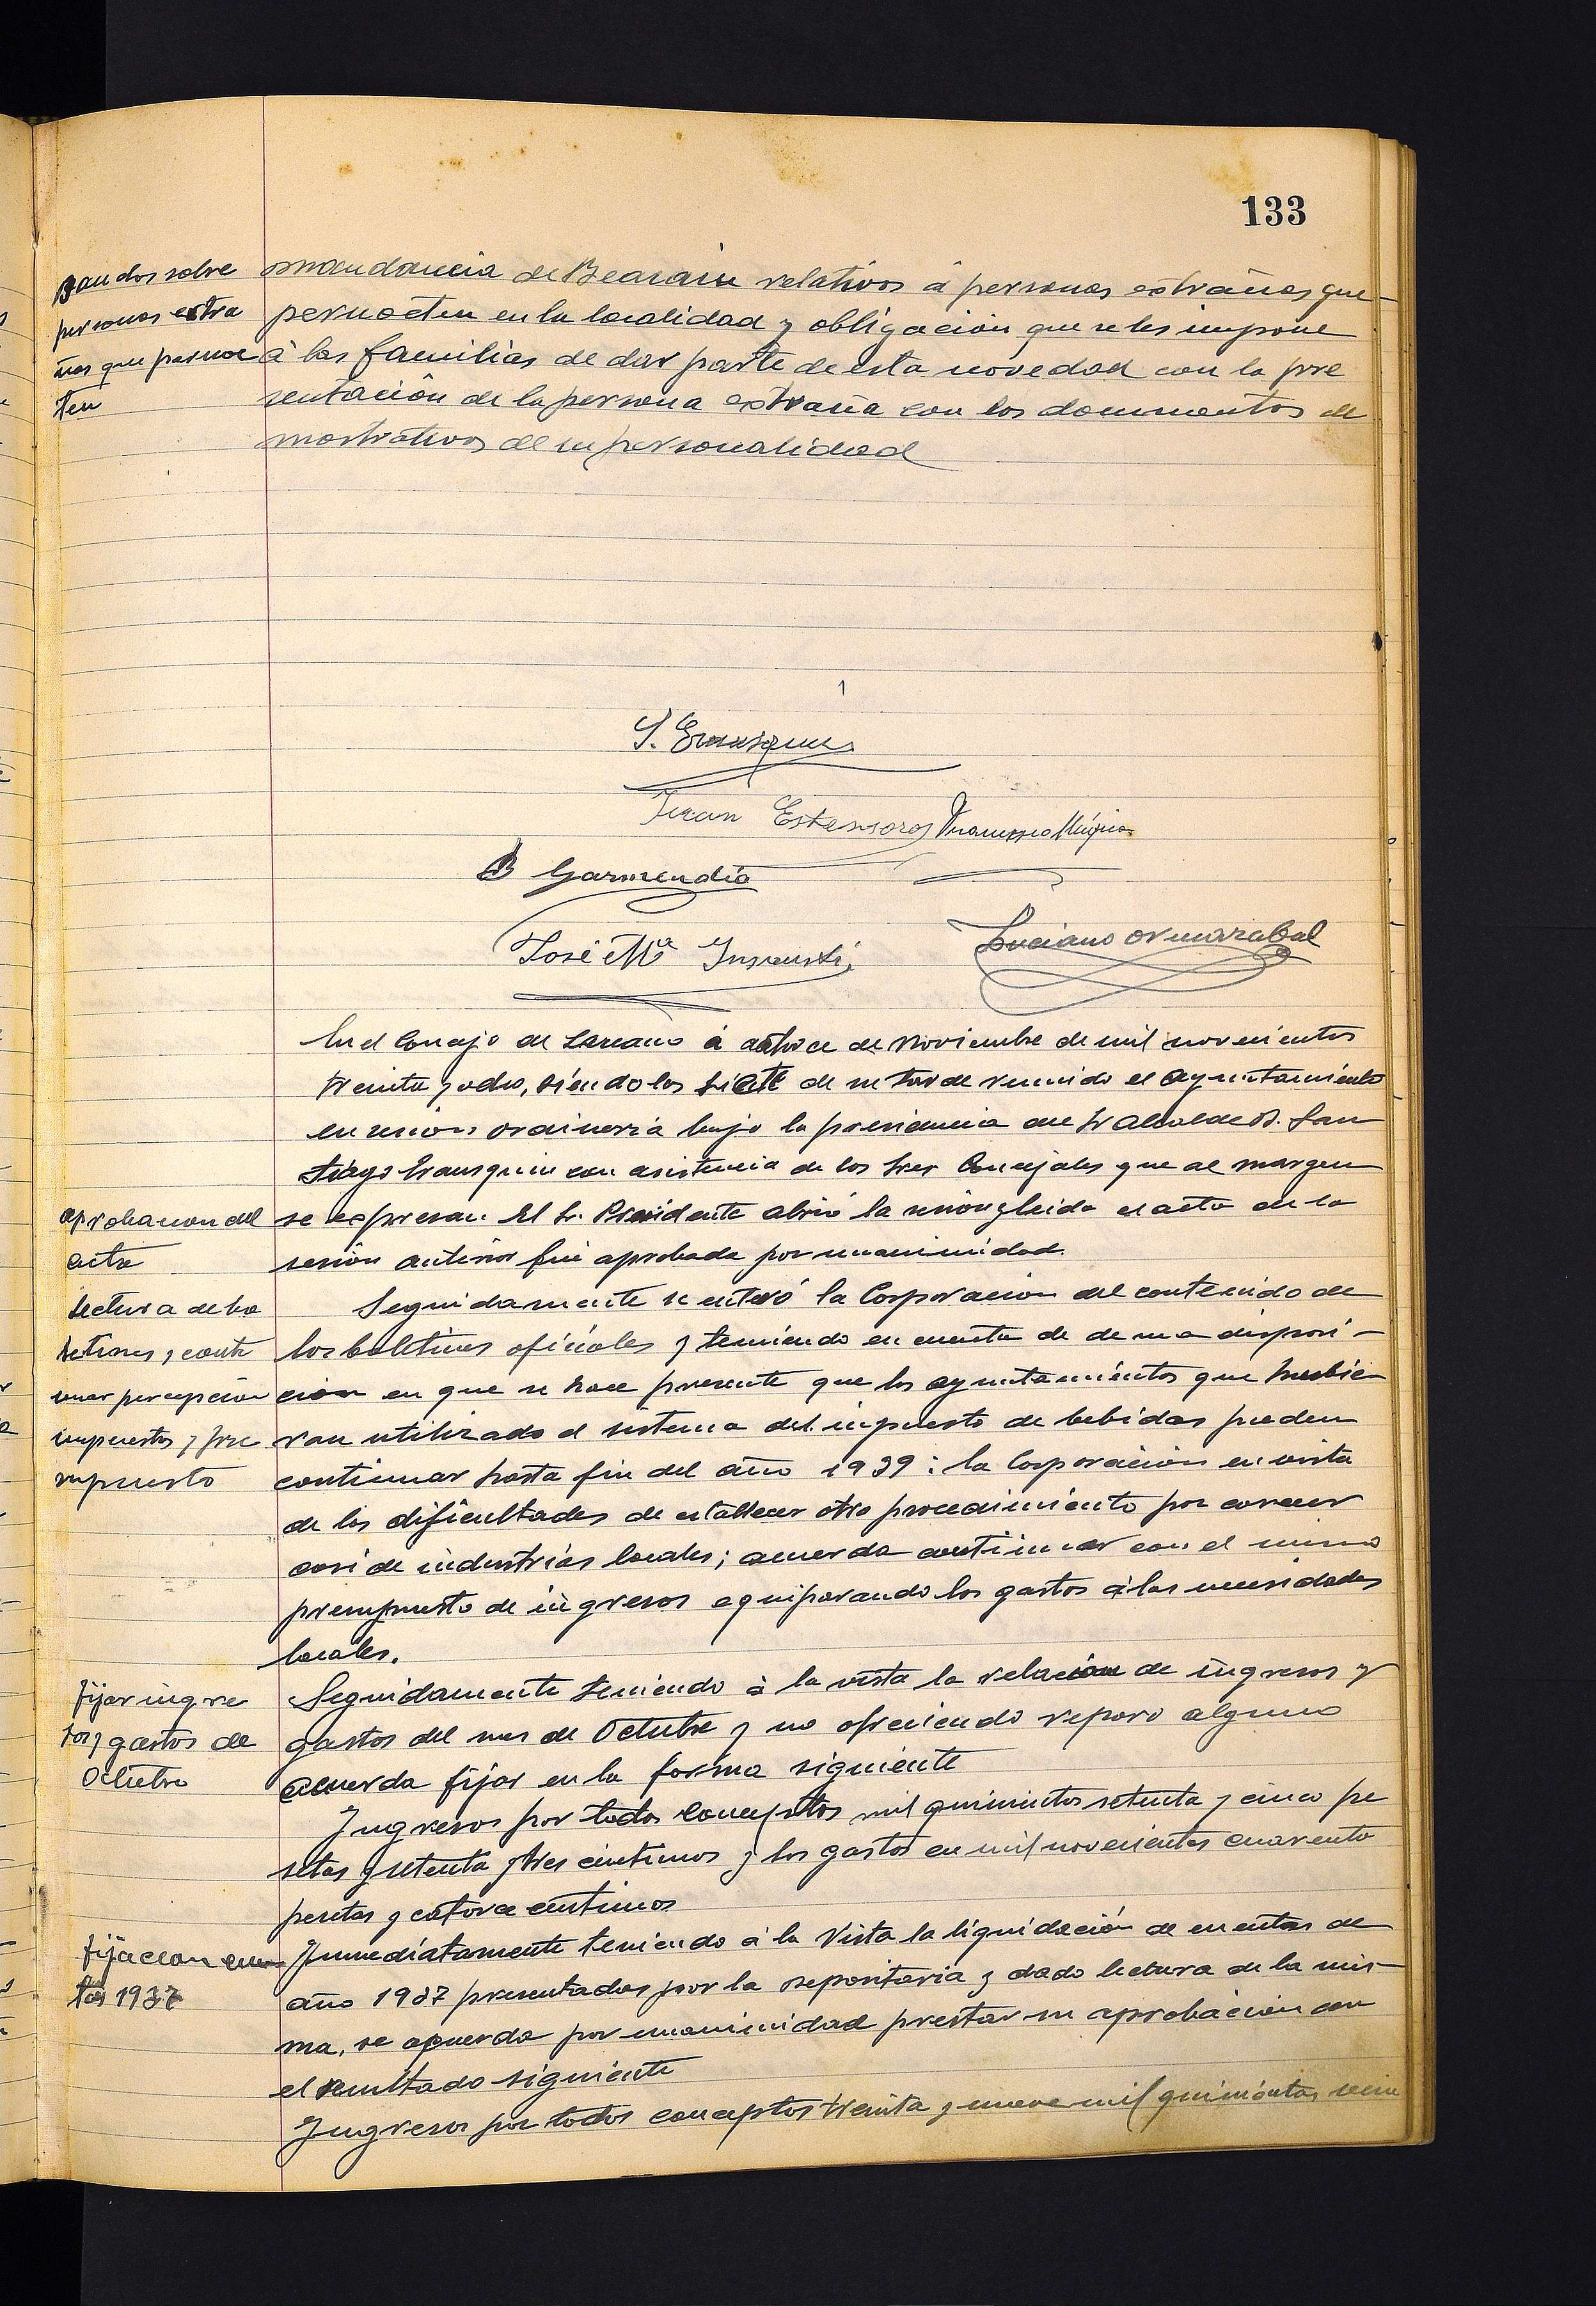 133
Bandos sobre
personas extra
ñas que pernoc
ten
mandancia de Beasain relativos á personas extrañas que
pernocten en la localidad y obligación que se les impone
á las familias de dar parte de esta novedad con la pre
sentación de la persona extraña con los documentos de
mostrativos de su personalidad
Juan Estensoro Francisco Múgica
B Garmendia
José Mª Insausti
Luciano Ormazabal
En el Concejo de Lazcano á catorce de Noviembre de mil novecientos
treinta y ocho, siendo las siete de su tarde reunido el Ayuntamiento
en sesion ordinaria bajo la presidencia del Sr Alcalde D. San
tiago Irausquin con asistencia de los Sres Concejales que al margen
aprobacion del
acta
se expresan. El Sr. Presidente abrió la sesión y leida el acta de la
sesión anterior fué aprobada por unanimidad.
Lectura de bo
letines, y conti
nuar percepcion
impuestos y pre
supuesto
Seguidamente se enteró la Corporación del contenido de
los boletines oficiales y teniendo en cuenta de de una disposi-
cion en que se hace presente que los ayuntamientos que hubie
ran utilizado el sistema del impuesto de bebidas pueden
continuar hasta fin del año 1939: la Corporación en vista
de las dificultades de establecer otro procedimiento por carecer
casi de industrias locales; acuerda continuar con el mismo
presupuesto de ingresos equiparando los gastos á las necesidades
locales.
fijar ingre
sos y gastos de
Octubre
Seguidamente teniendo á la vista la relación de ingresos y
gastos del mes de Octubre y no ofreciendo reparo alguno
acuerda fijar en la forma siguiente
Ingresos por todos conceptos mil quinientos setenta y cinco pe
setas y setenta y tres centimos y los gastos en mil novecientas cuarenta
pesetas y catorce centimos
fijacion cuen
tas 1937
Inmediatamente teniendo á la Vista la liquidación de cuentas de
año 1937 presentadas por la depositaria y dado lectura de la mis-
ma, se acuerda por unanimidad prestar su aprobación con
el resultado siguiente
Ingresos por todos conceptos treinta y nueve mil quinientas